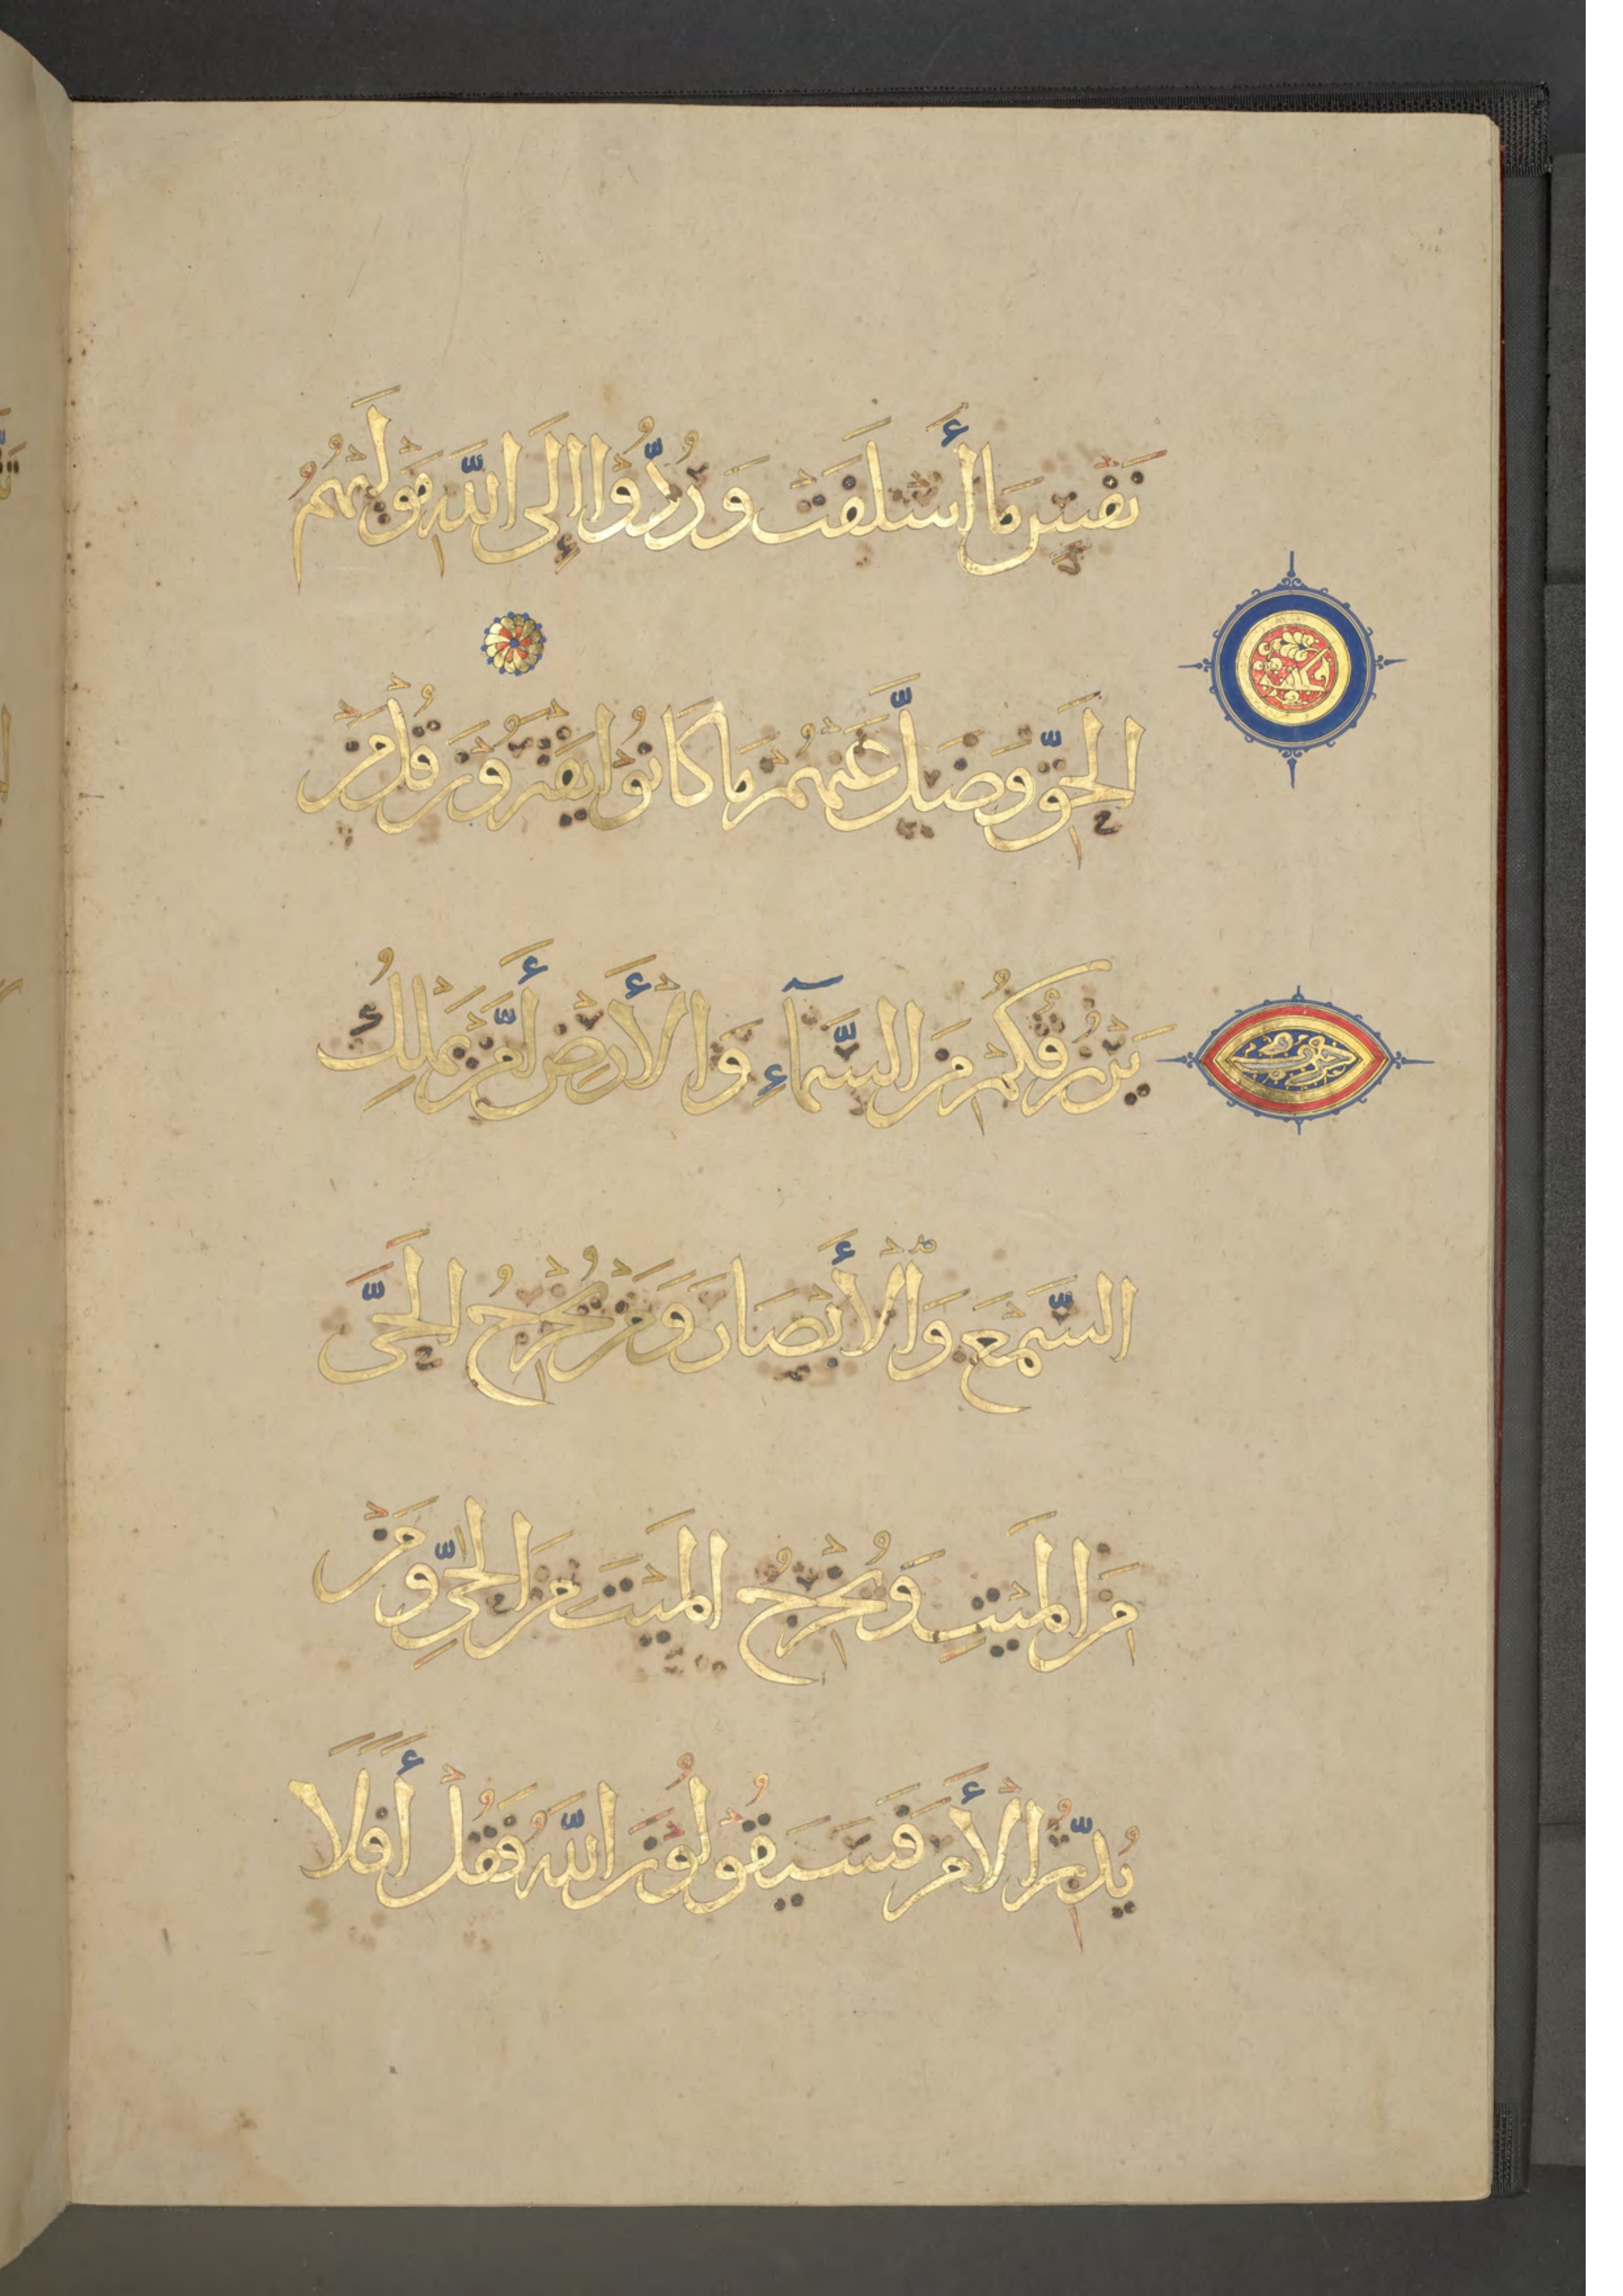 نَفْسٍ مَا أَسْلَفَتْ وَرُدُّوْا إِلَى اللَّهِ مَوْلَىٰهُمُ
الْحَقِّ وَضَلَّ عَنْهُمْ مَا كَانُوْا يَفْتَرُوْنَ قُلْ مَنْ
يَرْزُقُكُمْ مِنَ السَّمَآءِ وَالْأَرْضِ أَمَّنْ يَمْلِكُ
السَّمْعَ وَالْأَبْصَارَ وَمَنْ يُخْرِجُ الْحَيَّ
مِنَ الْمَيْتِ وَيُخْرِجُ الْمَيْتَ مِنَ الْحَيِّ وَمَنْ
يُدَبِّرُ الْأَمْرَ فَسَيَقُوْلُوْنَ اللَّهُ فَقُلْ أَفَلَا